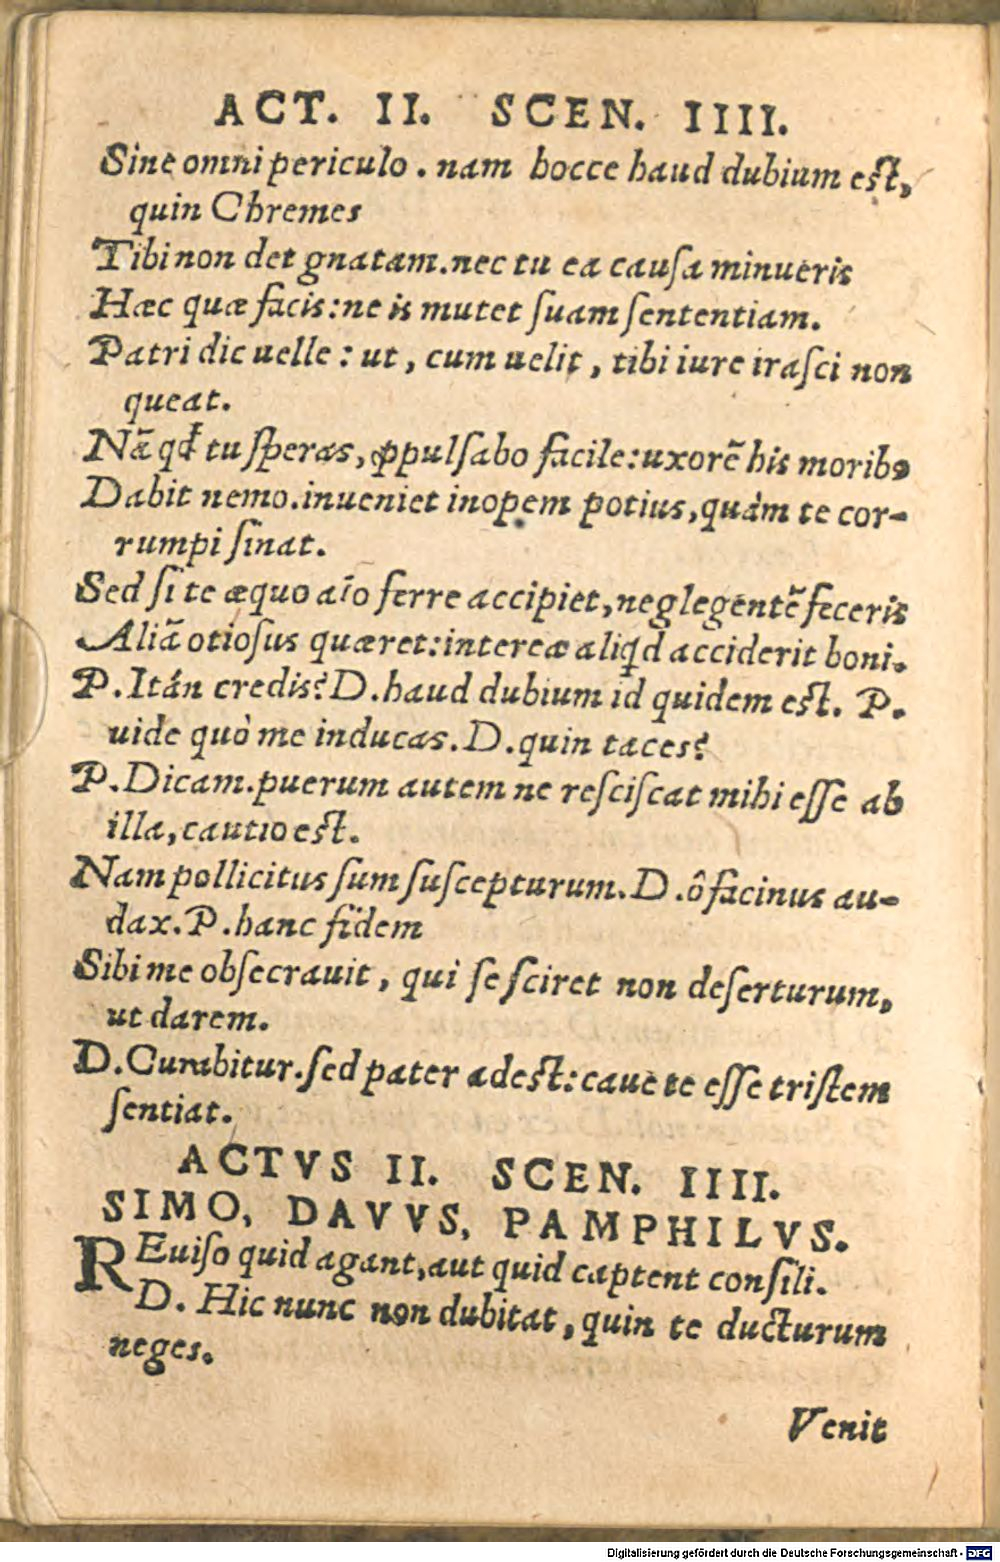 ACT. II. SCEN. IIII.
Sine omni periculo. nam hocce haud dubium est,
quin Chremes
Tibi non det gnatam. nec tu ea causa minueris
Hæc quæ facis: ne is mutet suam sententiam.
Patri dic uelle: ut, cum uelit, tibi iure irasci non
queat.
Nã qđ tu speras, ꝓpulsabo facile: uxorẽ his moribꝰ
Dabit nemo. inueniet inopem potius, quàm te cor-
rumpi sinat.
Sed si te æquo aĩo ferre accipiet, neglegentẽ feceris
Aliã otiosus quæret: interea aliqd acciderit boni.
P. Itán credis? D. haud dubium id quidem est. P.
uide quò me inducas. D. quin taces?
P. Dicam. puerum autem ne resciscat mihi esse ab
illa, cautio est.
Nam pollicitus sum suscepturum. D. ô facinus au-
dax. P. hanc fidem
Sibi me obsecrauit, qui se sciret non deserturum,
ut darem.
D. Curabitur. sed pater adest: caue te esse tristem
sentiat.
ACTVS II. SCEN. IIII.
SIMO, DAVVS, PAMPHILVS.
REuiso quid agant, aut quid captent consili.
D. Hic nunc non dubitat, quin te ducturum
neges.
Venit
Digitalisierung gefördert durch die Deutsche Forschungsgemeinschaft - DFG